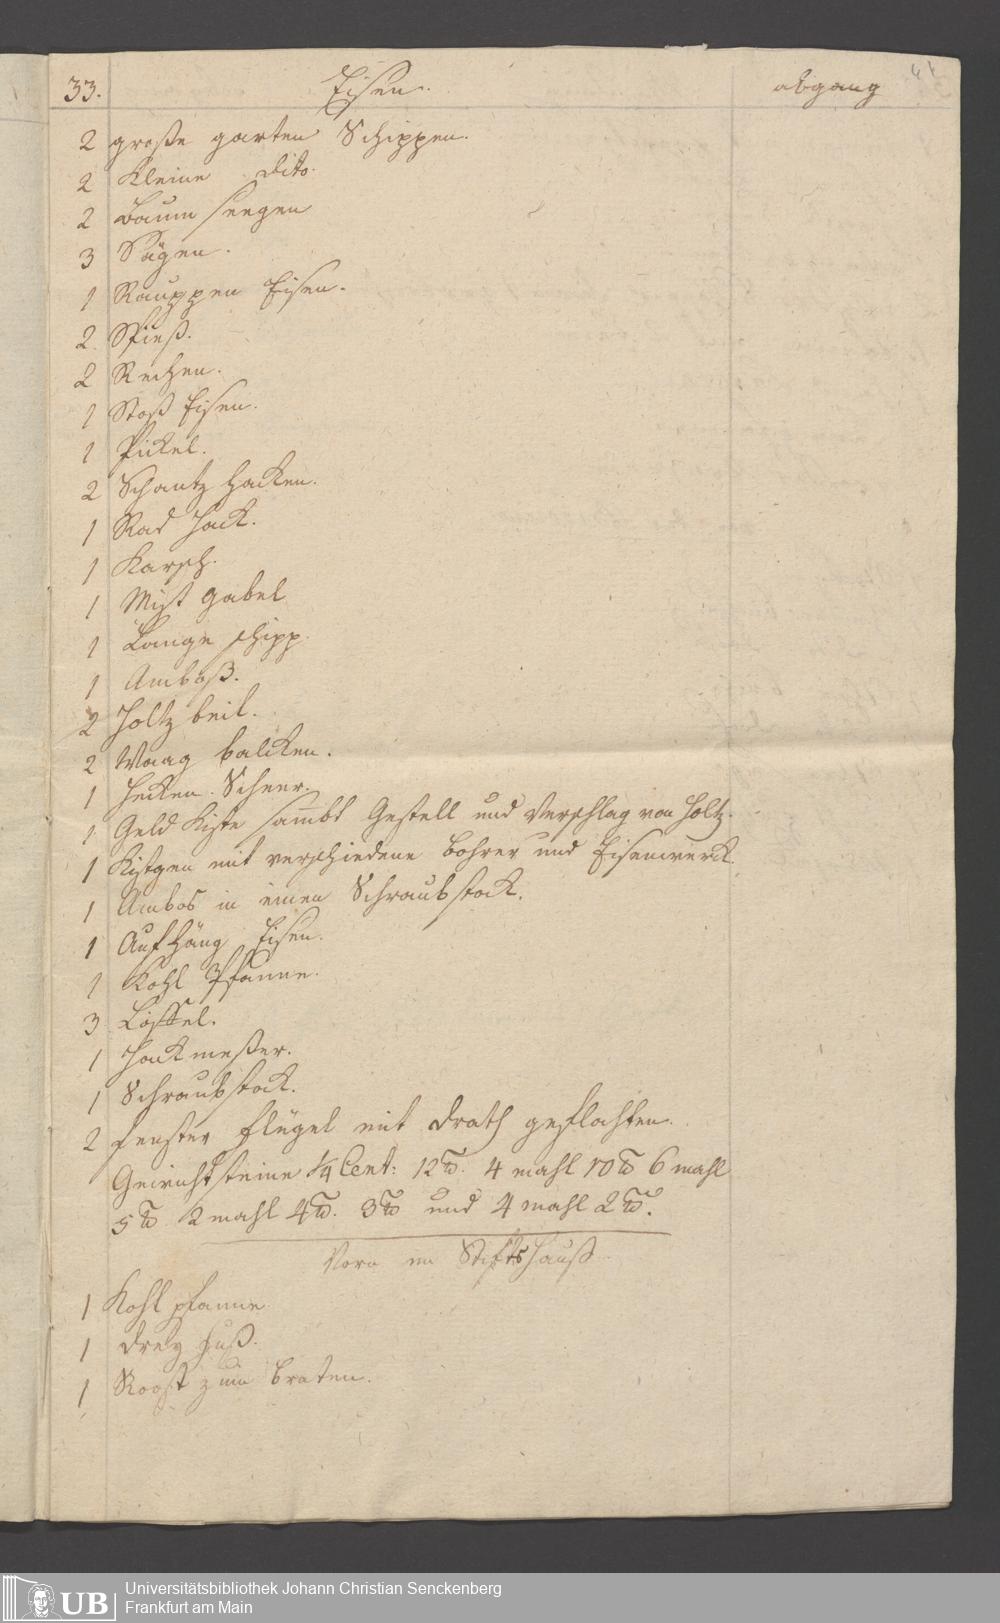 33. Eisen. abgang
2 große garten Schippen.
2 Kleine dito.
2 Baum seegen
3 Sägen.
1 Rauppen Eisen.
2 Spieß.
2 Rechen.
1 Stoß Eisen.
1 Pickel.
2 Schantz Hacken.
1 Rad Hack.
1 Karsch.
1 Mist gabel
1 Lange schipp.
1 Amboß.
2 Holtz beil.
2 Waag balcken.
1 Hecken Scheer.
1 Geld Kiste sambt Gestell und Verschlag von Holtz.
1 Kistgen mit verschiedene bohrer und Eisenwerck.
1 Ambos in einen Schraubstock.
1 Aufhäng Eisen.
1 Kohl Pfanne.
3 Löffel.
1 Hackmeßer.
1 Schraubstock.
2 Fenster Flügel mit Drath geflochten.
Gewichtsteine ¼ Cent: 12 ℔. 4 mahl 10 ℔ 6 mahl
5 ℔ 2 mahl 4 ℔. 3 ℔ und 4 mahl 2 ℔.
Vorn im Stiftshauß
1 Kohl pfanne
1 Drey Fuß.
1 Roost zum braten.
Universitätsbibliothek Johann Christian Senckenberg
UB Frankfurt am Main